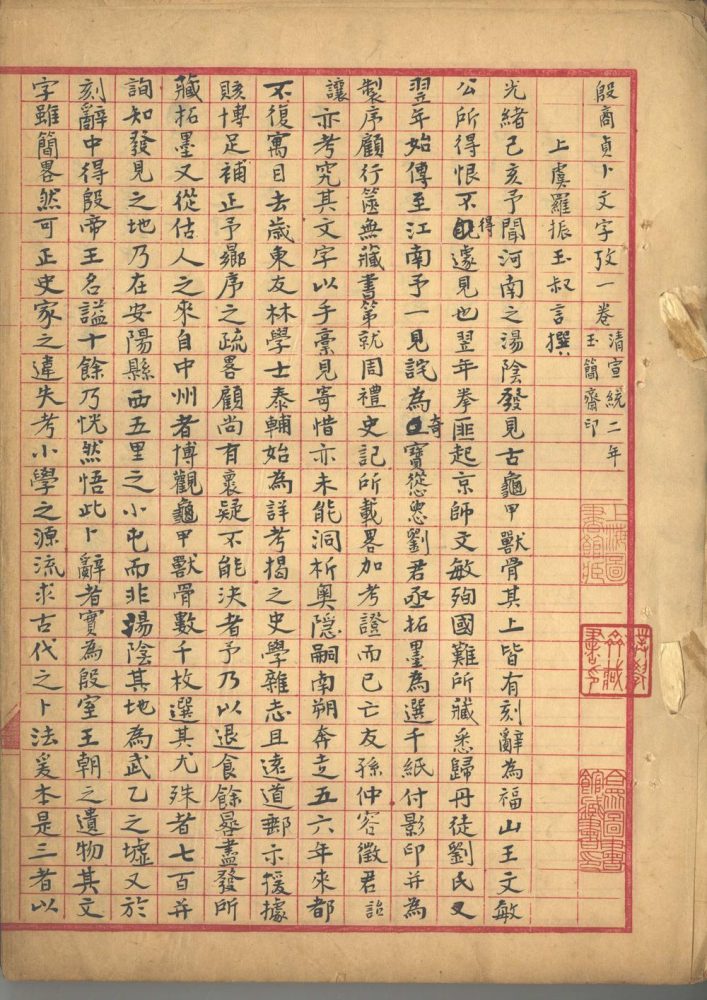 殷商貞卜文字攷一卷
清宣統二年
玉簡齋印
上虞羅振玉叔言撰
光緒己亥予聞河南之湯陰發見古龜甲獸骨其上皆有刻辭為福山王文敏
公所得恨不得遽見也翌年拳匪起京師文敏殉國難所藏悉歸丹徒劉氏又
翌年始傳至江南予一見詫為奇寶慫恿劉君亟拓墨為選千紙付影印并為
製序顧行篋無藏書第就周禮史記所載畧加考證而已亡友孫仲容徵君詒
讓亦考究其文字以手稾見寄惜亦未能洞析奧隱嗣南朔奔走五六年來都
不復寓目去歲東友林學士泰輔始為詳考揭之史學雜志且遠道郵示援據
賅博足補正予曏序之疏畧顧尚有褱疑不能決者予乃以退食餘晷盡發所
藏拓墨又從估人之來自中州者博觀龜甲獸骨數千枚選其尤殊者七百并
詢知發見之地乃在安陽縣西五里之小屯而非湯陰其地為武乙之墟又於
刻辭中得殷帝王名謚十餘乃恍然悟此卜辭者實為殷室王朝之遺物其文
字雖簡畧然可正史家之違失考小學之源流求古代之卜法爰本是三者以
上海圖書館藏
合眾圖書館藏書印